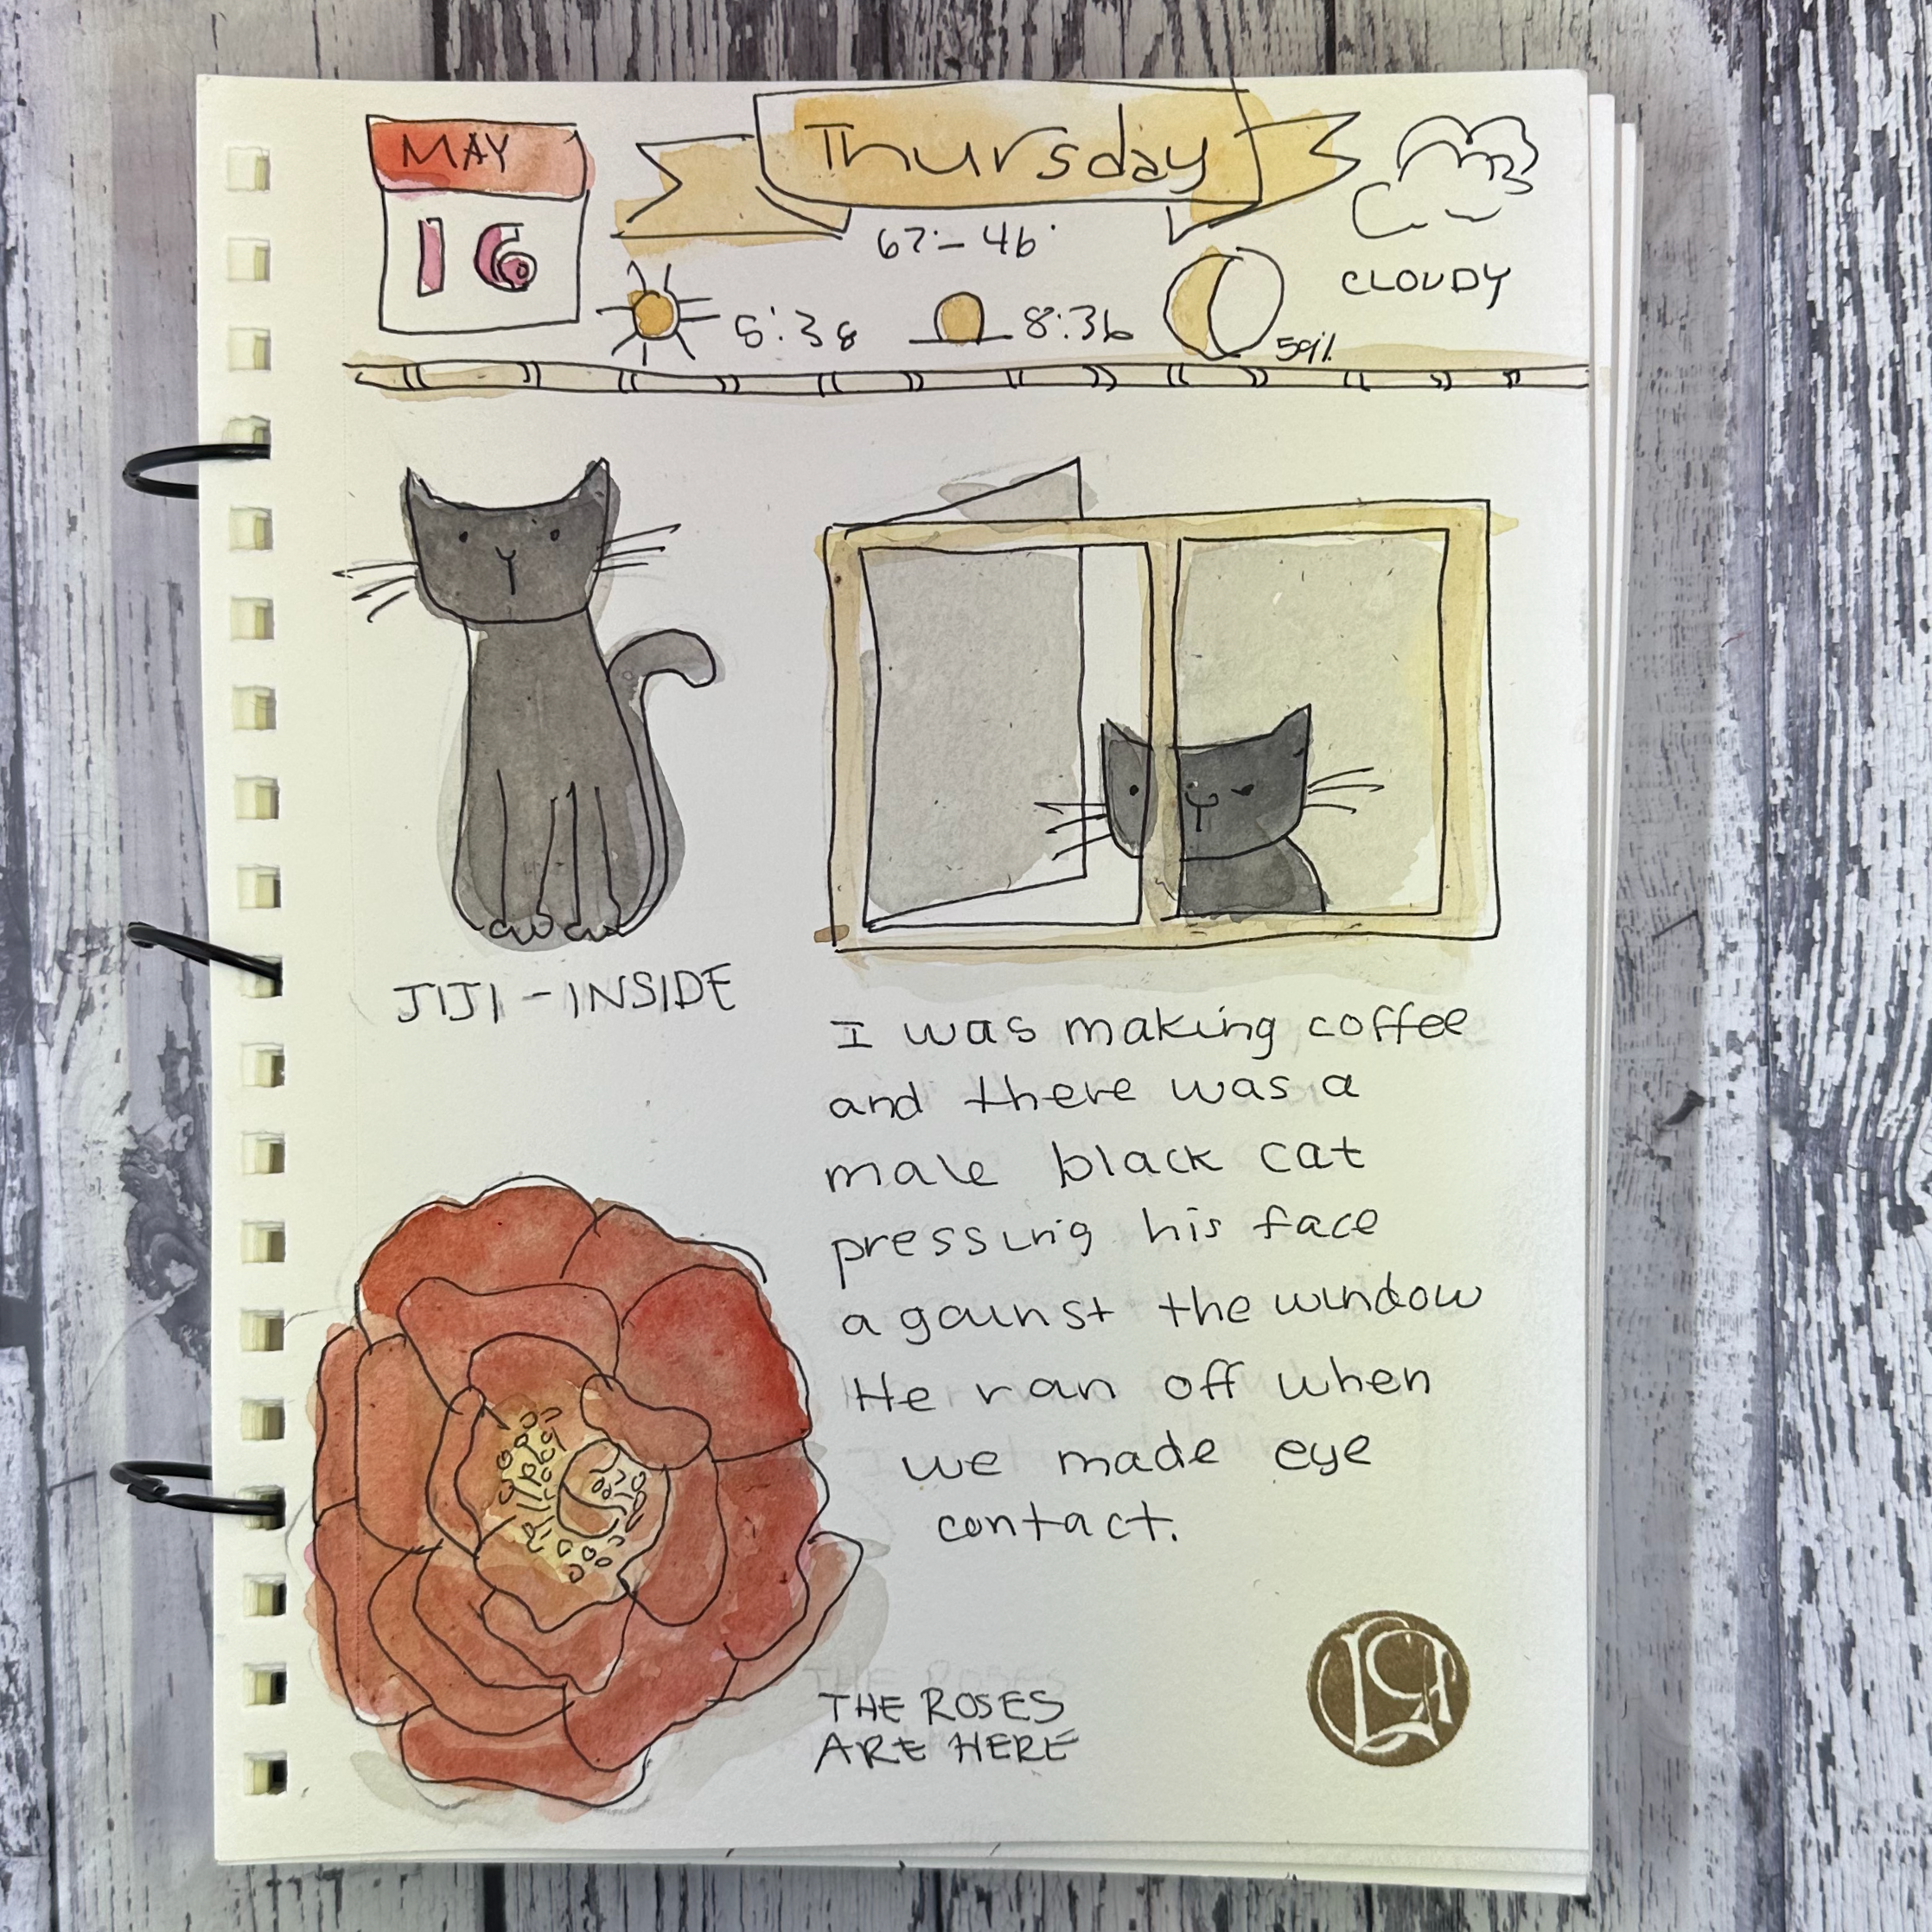 MAY
16
Thursday
67°-46°
CLOUDY
5:38
8:36
59%
JIJI - INSIDE
I was making coffee
and there was a
male black cat
pressing his face
against the window
He ran off when
we made eye
contact.
THE ROSES
ARE HERE